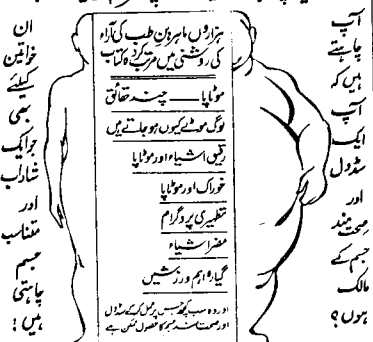 آپ
چاہتے
ہیں کہ
آپ
ایک
سڈول
اور
صحت مند
جسم کے
مالک
ہوں؟
ہزاروں ماہرین طب کی آراء
کی روشنی میں مرتب کردہ کتاب
موٹاپا ــــ چند حقائق
لوگ موٹے کیوں ہو جاتے ہیں
رقیق اشیاء اور موٹاپا
خوراک اور موٹاپا
تطہیری پروگرام
مضر اشیاء
گیارہ اہم ورزشیں
اور وہ سب کچھ جس پر عمل کر کے سڈول
اور صحت مند جسم کا حصول ممکن ہے
ان
خواتین
کیلئے
بھی
جو ایک
شاداب
اور
متناسب
جسم
چاہتی
ہیں!